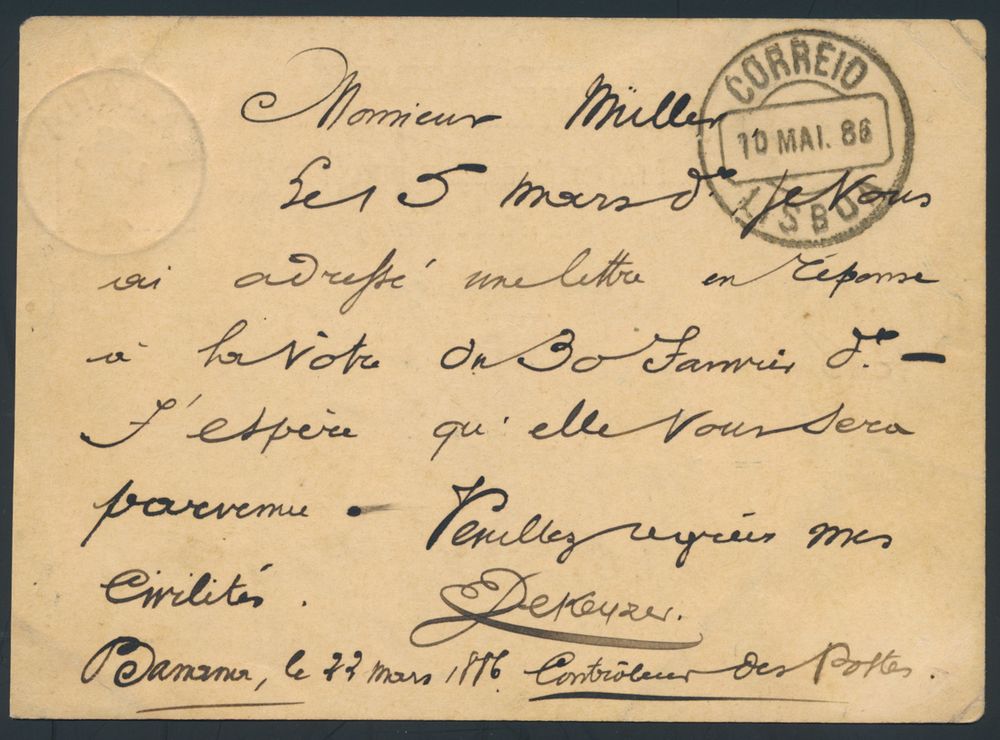 Monsieur Müller
CORREIO
10 MAI. 86
LISBOA
Le 5 mars dr, je vous
ai adressé une lettre en réponse
à la vôtre du 30 Janvier dr. —
J'espère qu'elle vous sera
parvenue. Veuillez agréer mes
Civilités.
DeKeyzer.
Banana, le 22 mars 1886 Contrôleur des Postes.